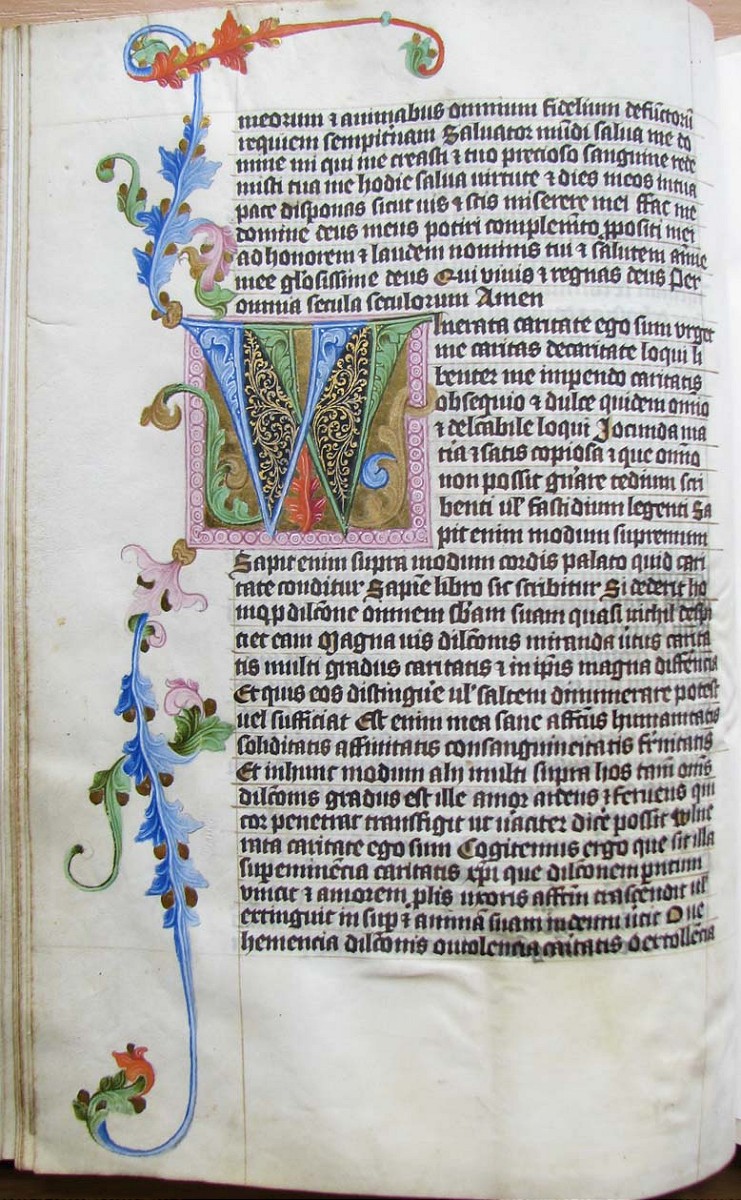 meorum ⁊ animabus omnium fidelium defūctorū
requiem sempit̄nam Saluator mūdi salua me do
mine mi qui me creasti ⁊ tuo precioso sanguine rede
misti tua me hodie salua uirtute ⁊ dies meos in tua
pace disponas sicut uis ⁊ scis miserere mei ffac me
domine deus meus potiri complemēto ꝓpositi mei
ad honorem ⁊ laudem nominis tui ⁊ salutem aīme
mee gl'osissime deus Qui viuis ⁊ regnas deus Per
omnia secula seculorum Amen
Wlnerata caritate ego sum vrget
me caritas de caritate loqui li
benter me impendo caritatis
obsequio ⁊ dulce quidem om̄io
⁊ delc̄abile loqui Jocunda ma
tīa ⁊ satis copiosa ⁊ que om̄io
non possit gn̄are tedium scri
benti ul' fastidium legenti Sa
pit enim modum supremum
Sapit enim supra modum cordis palato quid cari
tate conditur Sapīe libro sic scribitur Si dederit ho
mo p dilc̄one omnem sb̄am suam quasi nichil despi
ciet eam Magna uis dilc̄onis miranda ūtus carita
tis multi gradus caritatis ⁊ in ip̄is magna diffēncia
Et quis eos distingue' ul' saltem dinumerare potest
uel sufficiat Est enim mea sane affc̄us humanitatis
soliditatis affinitatis consanguineitatis fr̄nitatis
Et in hunc modum alij multi supra hos tam̄ om̄s
dilc̄onis gradus est ille amor ardens ⁊ feruens qui
cor penetrat transfigit ut ūaciter dice' possit Wlne
rata caritate ego sum Cogitemus ergo que sit illa
supeminēcia caritatis xp̄i que dilc̄onem pntum
vincit ⁊ amorem plis uxoris affcm̄ trascendit ul'
extinguit in sup ⁊ animā suam in
hemencia dilc̄onis o uiolencia caritatis o excellēcia